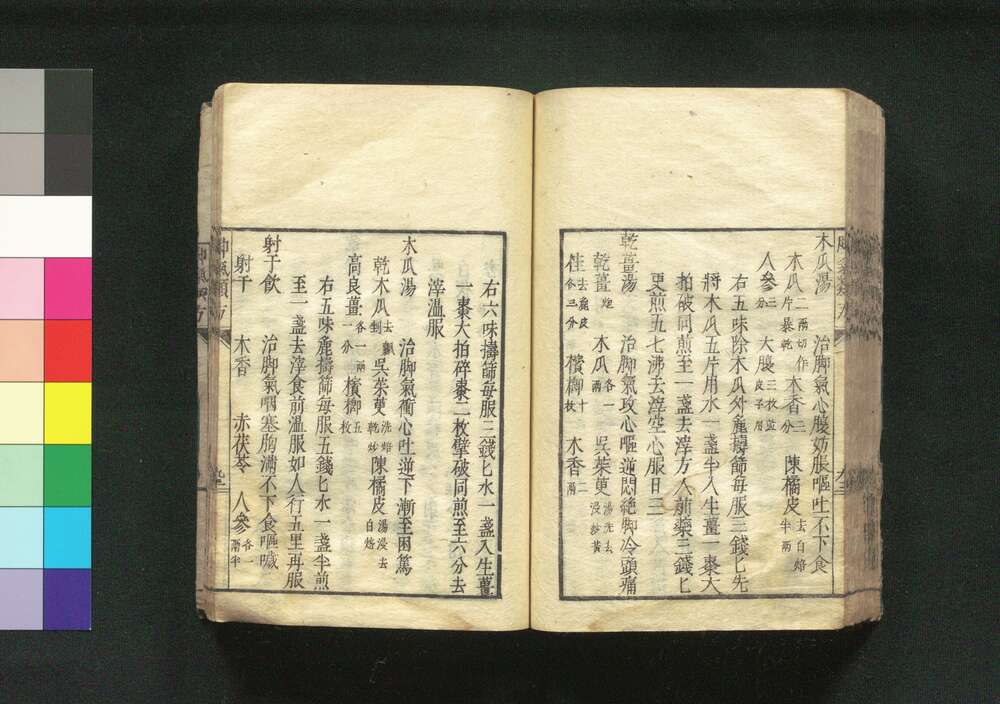 木瓜湯 治脚氣心腹妨脹嘔吐不下食
木瓜二兩切作片暴乾 木香三分 陳橘皮去白焙半兩
人參三分 大腹三枚並皮子用
右五味除木瓜外麄擣篩每服三錢匕先
將木瓜五片用水一盞半入生薑一棗大
拍破同煎至一盞去滓方入前藥三錢匕
更煎五七沸去滓空心服日三
乾薑湯 治脚氣攻心嘔逆悶絶脚冷頭痛
乾薑炮 木瓜各一兩 吳茱萸湯洗去浸炒黃
桂去麄皮各三分 檳榔十枚 木香二兩
右六味擣篩每服三錢匕水一盞入生薑
一棗大拍碎棗二枚擘破同煎至六分去
滓溫服
木瓜湯 治脚氣衝心吐逆下漸至困篤
乾木瓜去瓤剉 吳茱萸洗焙乾炒 陳橘皮湯浸去白焙
高良薑各一兩一分 檳榔五枚
右五味麄擣篩每服五錢匕水一盞半煎
至一盞去滓食前溫服如人行五里再服
射干飲 治脚氣咽塞胸滿不下食嘔噦
射干 木香 赤茯苓 人參各一兩半